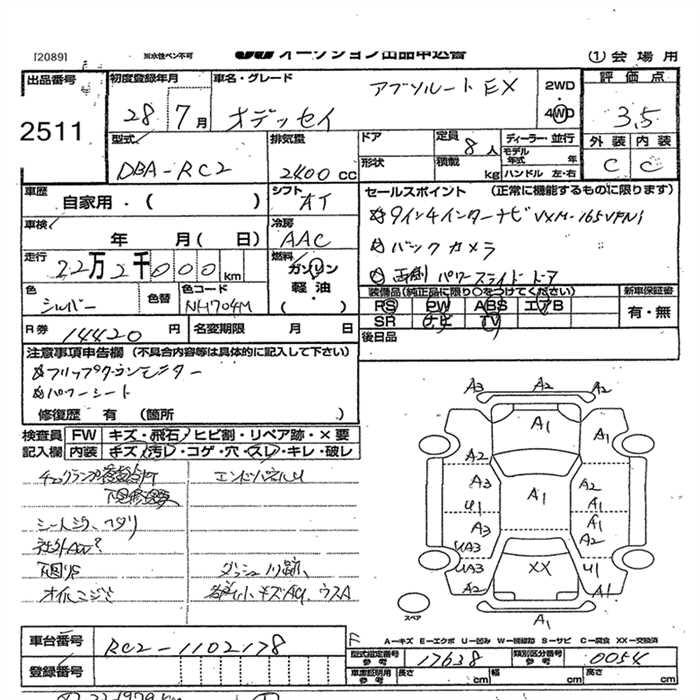 [2089] 耐水性ペン不可 オークション出品申込書 ①会場用
出品番号 初度登録年月 車名・グレード 評価点
2511 28 7月 オデッセイ アブソルート EX 2WD 4WD 3.5
型式 排気量 ドア 定員 ディーラー・並行 外装 内装
DBA-RC2 2400cc 8人 モデル年式 年 C C
形状 積載 kg ハンドル 左・右
車歴 シフト セールスポイント (正常に機能するものに限ります)
自家用・( ) AT
9インチインターナビ VXM-165VFNi
車検 冷房
年 月(日) AAC バックカメラ
走行 燃料
22万2千000km ガソリン 両側パワースライドドア
軽油
色 色替 色コード 装備品(純正品に限り○をつけてください) 新車保証書
シルバー NH704M PS PW ABS エアB 有・無
SR ナビ TV
R券 14420円 名変期限 月 日 後日品
注意事項申告欄 (不具合内容等は具体的に記入して下さい)
フリップダウンモニター
パワーシート
修復歴 有 (箇所 )
検査員 FW キズ・飛石・ヒビ割・リペア跡・×要
記入欄 内装 キズ・汚レ・コゲ・穴・スレ・キレ・破レ
エンドパネルU
A3 A2 A2
A1 A1
A2
A3 A1 A2
U1 A1
A3 A1
UA3 A2
UA3 XX U1
A2 A1
A1
スペア
A-キズ E-エクボ U-凹み W-補修跡 S-サビ C-腐食 XX-交換済
車台番号 RC2-1102178
型式指定番号 参考 17638 類別区分番号 参考 0054
登録番号 車庫証明用 参考 長さ cm 幅 cm 高さ cm